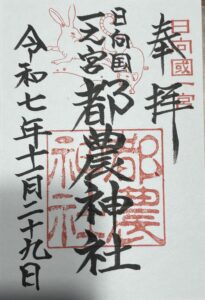 奉拝
日向國一宮
日向国
一之宮
都農神社
都農神社
令和七年十一月二十九日